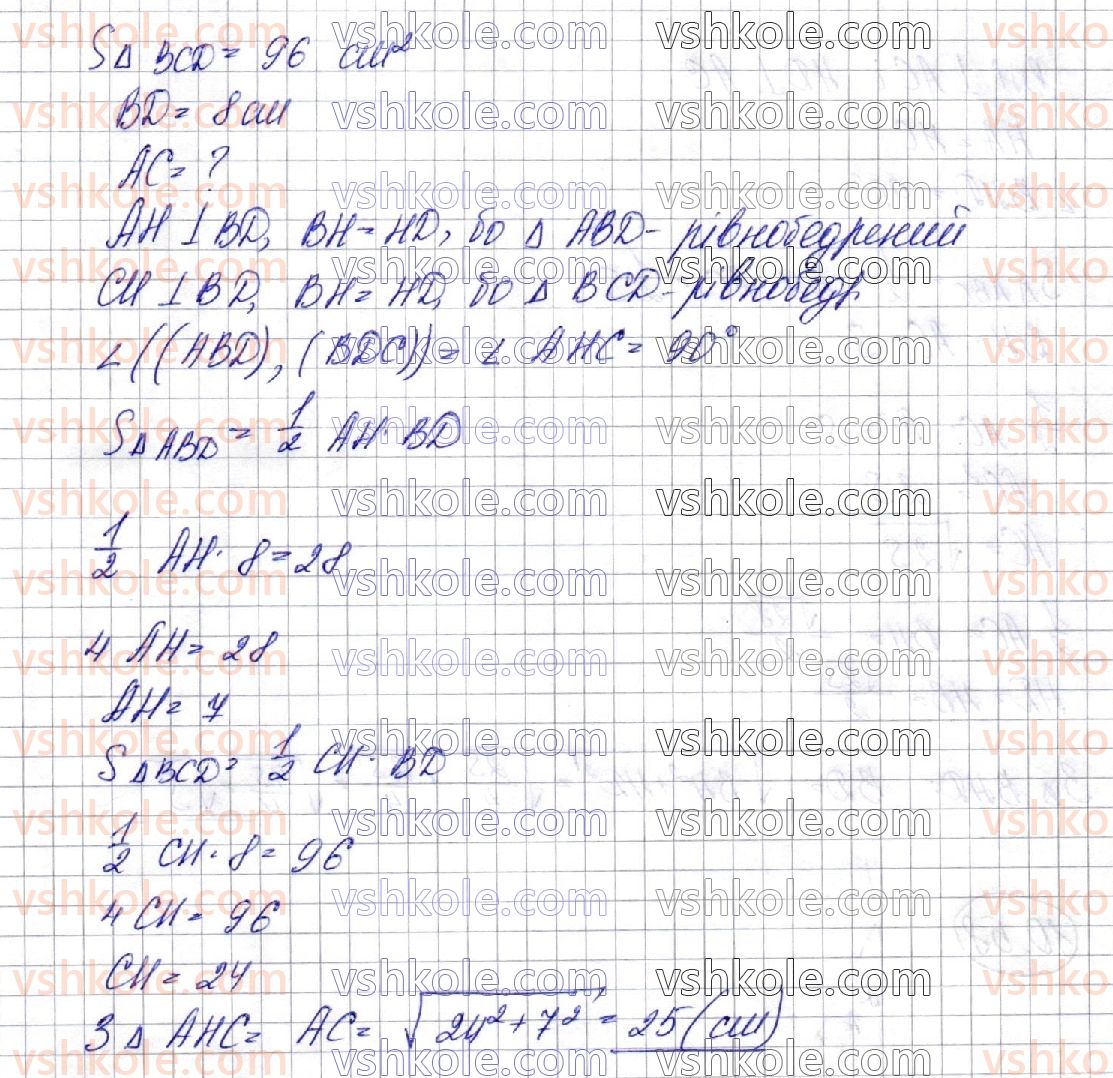 S△ BCD = 96 см²
BD = 8 см
AC = ?
AH ⊥ BD, BH = HD, бо △ ABD - рівнобедрений
CH ⊥ BD, BH = HD, бо △ BCD - рівнобедр.
∠((ABD), (BDC)) = ∠ AHC = 90°
S△ABD = 1/2 AH · BD
1/2 AH · 8 = 28
4 AH = 28
AH = 7
S△BCD = 1/2 CH · BD
1/2 CH · 8 = 96
4 CH = 96
CH = 24
З △ AHC = AC = √24² + 7² = 25 (см)
vshkole.com